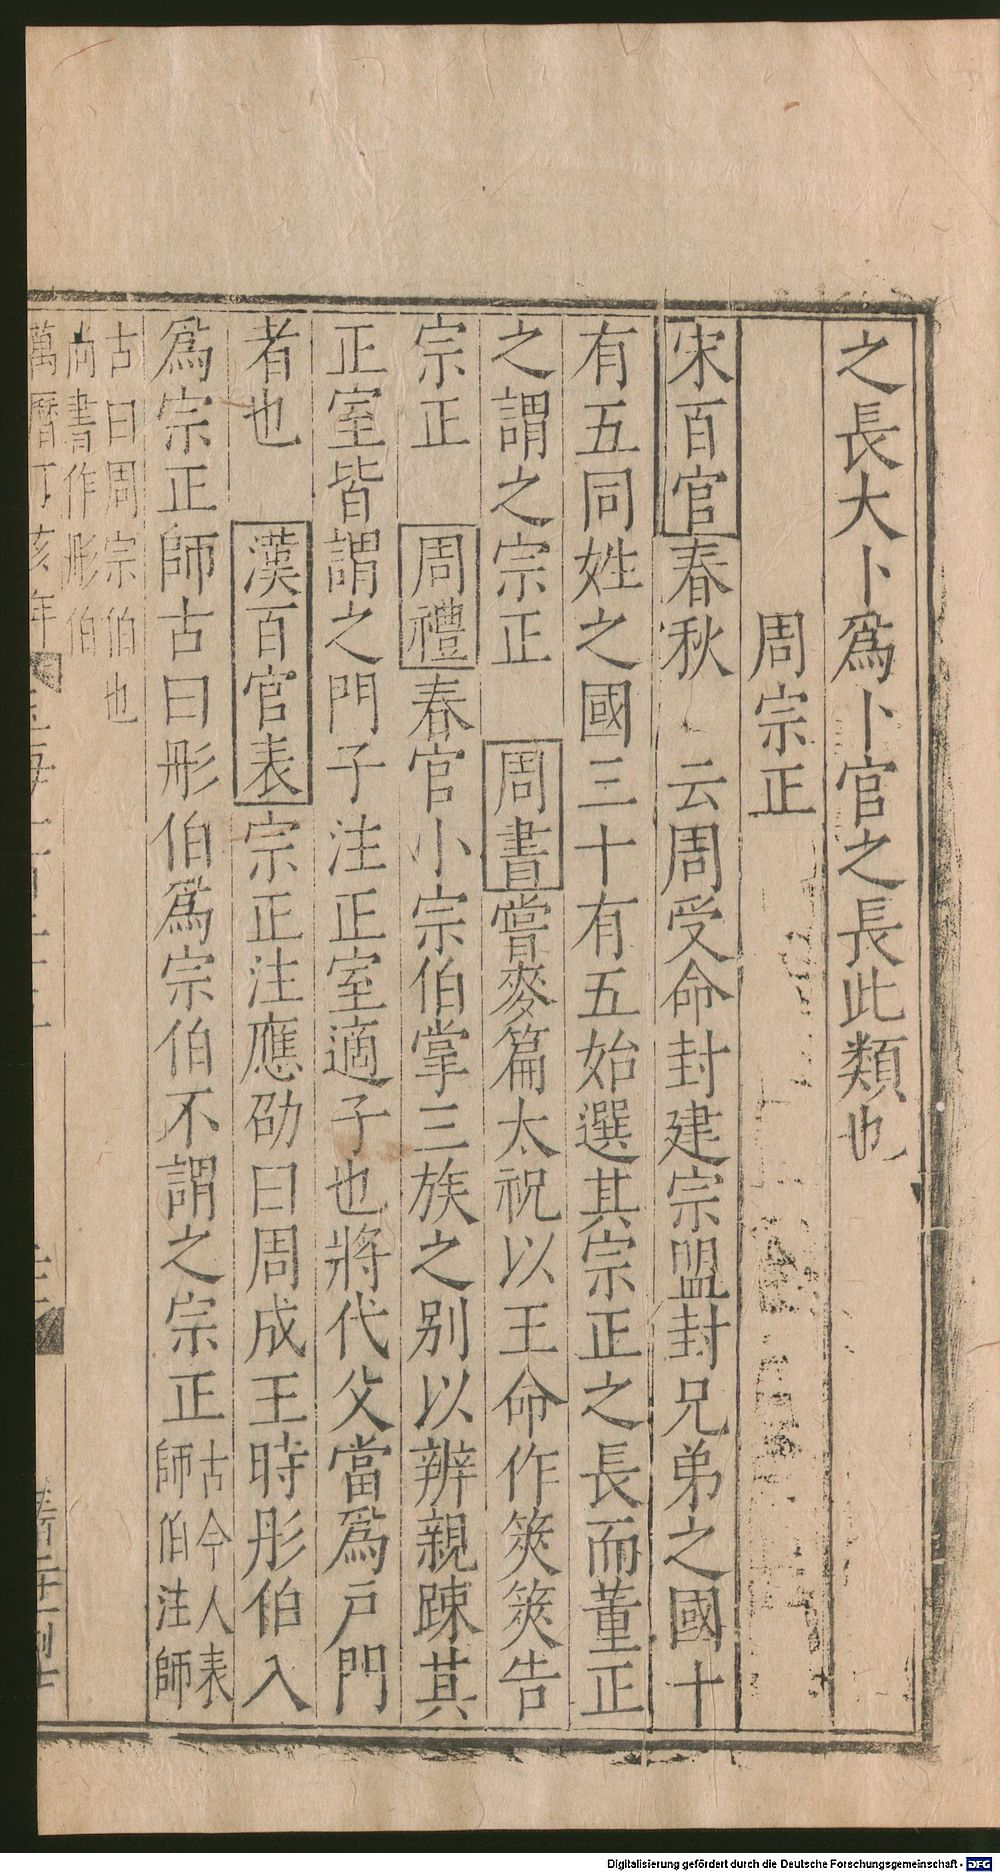 之長大卜爲卜官之長此類也
周宗正
宋百官春秋 云周受命封建宗盟封兄弟之國十
有五同姓之國三十有五始選其宗正之長而董正
之謂之宗正 周書嘗麥篇太祝以王命作筴筴告
宗正 周禮春官小宗伯掌三族之别以辨親踈其
正室皆謂之門子注正室適子也將代父當爲戸門
者也 漢百官表宗正注應劭曰周成王時彤伯入
爲宗正師古曰彤伯爲宗伯不謂之宗正古今人表
師伯注師
古曰周宗伯也
尚書作彤伯
萬曆丁亥年
Digitalisierung gefördert durch die Deutsche Forschungsgemeinschaft - DFG